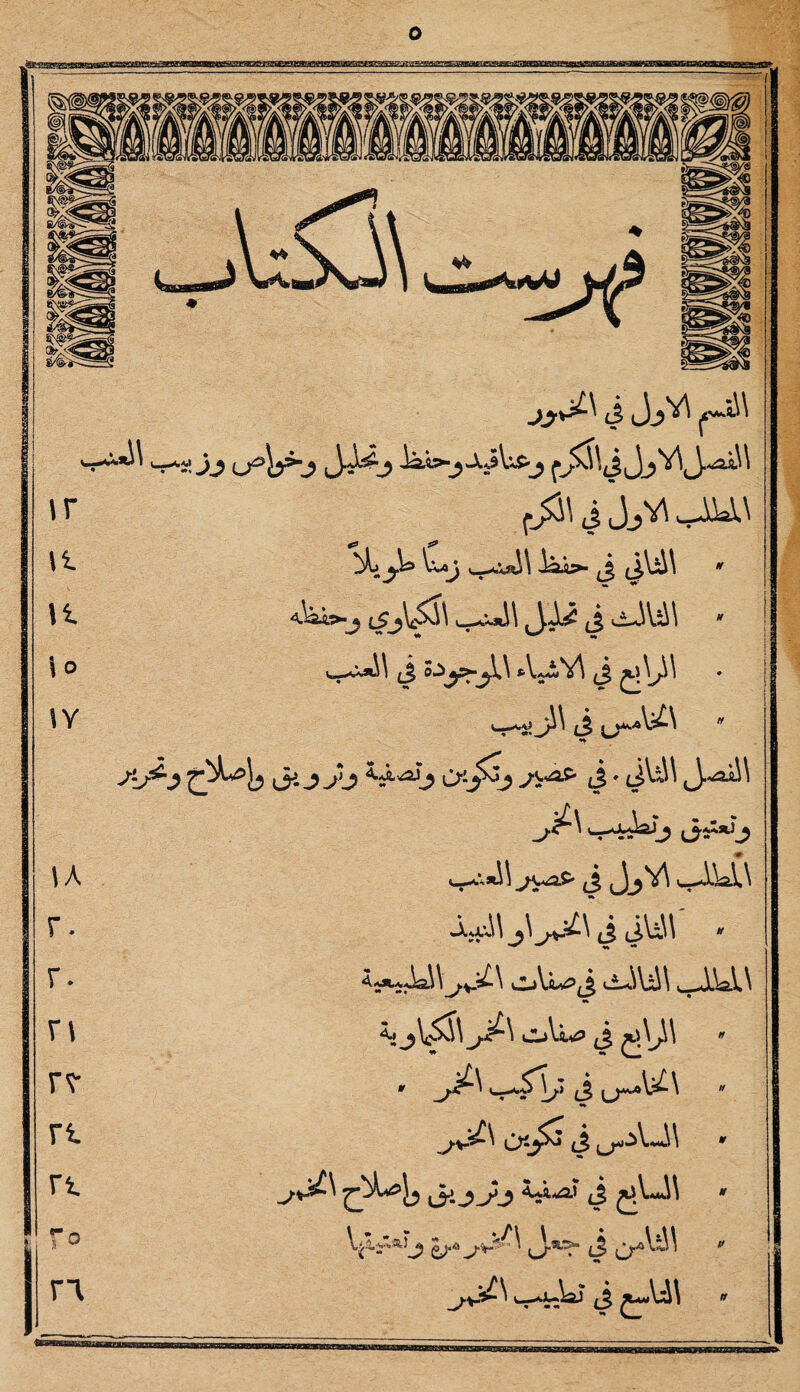 ٥
فهرست الكتاب
القسم الاول في الخمور
الفصل الاول في الكرم وعناقيد وحفظ وتحليل وخواص وزبيب العنب
المطلب الاول في الكرم ١٢
" الثاني في حفظ العنب زمنا طويلاً ١٤
" الثالث في تحليل العنب الكيماوي وحفظه ١٤
" الرابع في الاشياء الموجودة في العنب ١٥
" الخامس في الزبيب ١٧
الفصل الثاني في عصير وتكوين وتصفية وترويق واصلاح وتخمير
وتعتيق وتطييب الخمر
المطلب الاول في عصير العنب ١٨
" الثاني في الخمر او النبيذ ٢٠
المطلب الثالث في صفات الخمر الطبيعية ٢٠
" الرابع في صفات الخمر الكيماوية ٢١
" الخامس في تراكيب الخمر ٢٣
" السادس في تكوين الخمر ٢٤
" السابع في تصفية وترويق واصلاح الخمر ٢٤
" الثامن في جعل الخمر وتعتيقها ٢٥
" التاسع في تطييب الخمر ٢٦